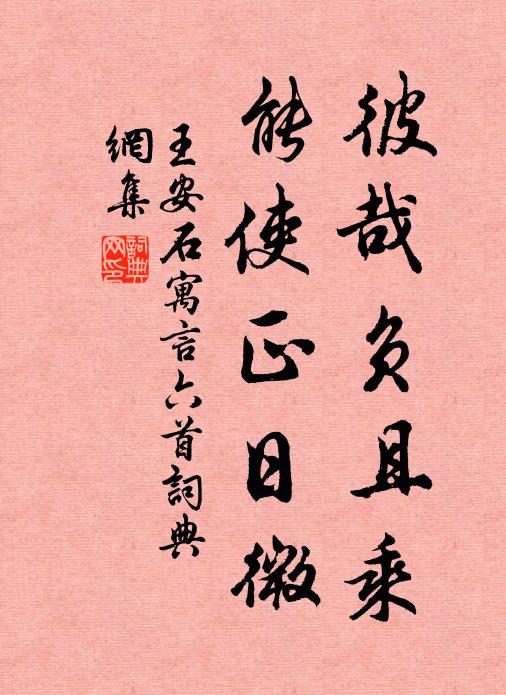 彼哉負且乘
能使正日微
王安石寓言六首詞典
網集
詞典
网印